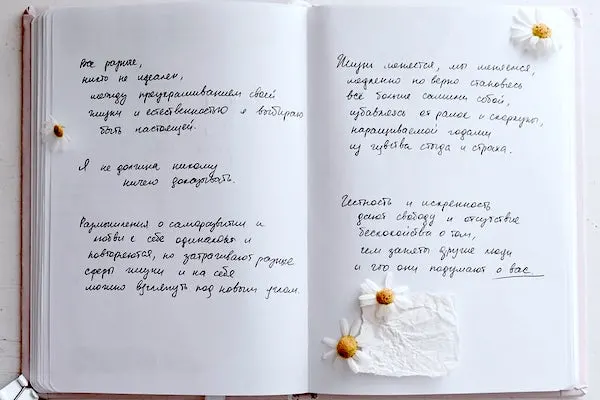 Все разные,
никто не идеален,
между приукрашиванием своей
жизни и естественностью я выбираю
быть настоящей.
Я не должна никому
ничего доказывать.
Размышления о саморазвитии и
любви к себе одинаковы и
повторяются, но затрагивают разные
сферы жизни и на себя
можно взглянуть под новым углом.
Жизнь меняется, мы меняемся,
медленно но верно становясь
всё больше самими собой,
избавляясь от рамок и скорлупы,
наращиваемой годами
из чувства стыда и страха.
Честность и искренность
дают свободу и отсутствие
беспокойства о том,
чем заняты другие люди
и что они подумают о вас